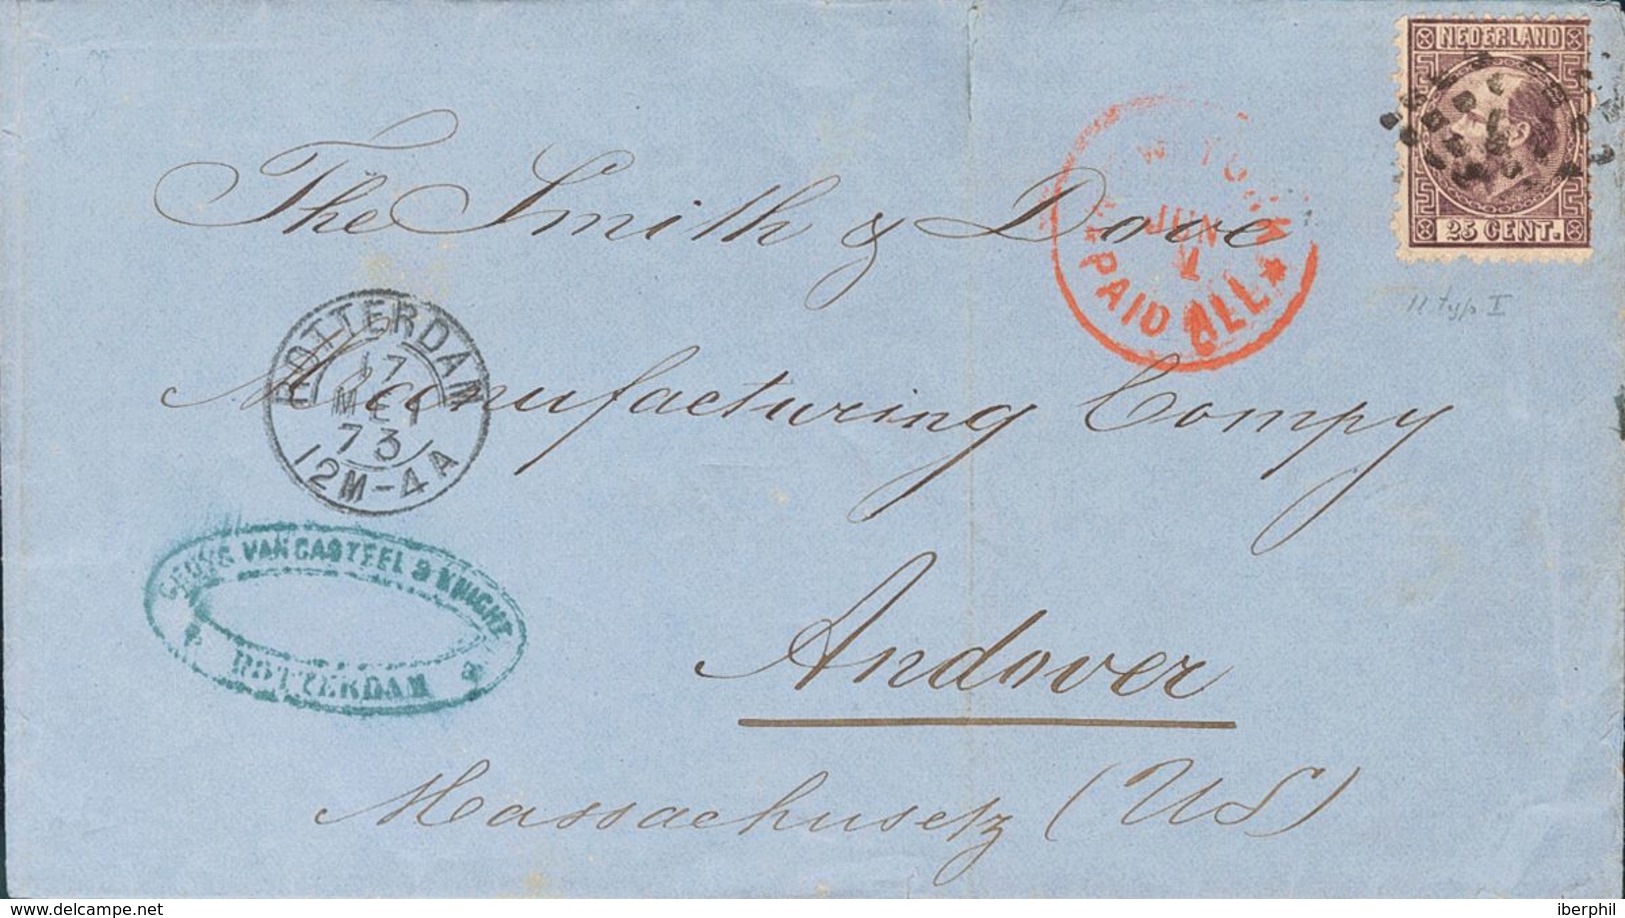 NEDERLAND
25 CENT.
The Smith & Dove
JUN
PAID ALL
11 typ I
ROTTERDAM
17
MEI
73
12M-4A
Manufacturing Compy
VAN CASTEEL & KNIGHT
ROTTERDAM
Andover
Massachusetz (US)
delcampe.net
iberphil